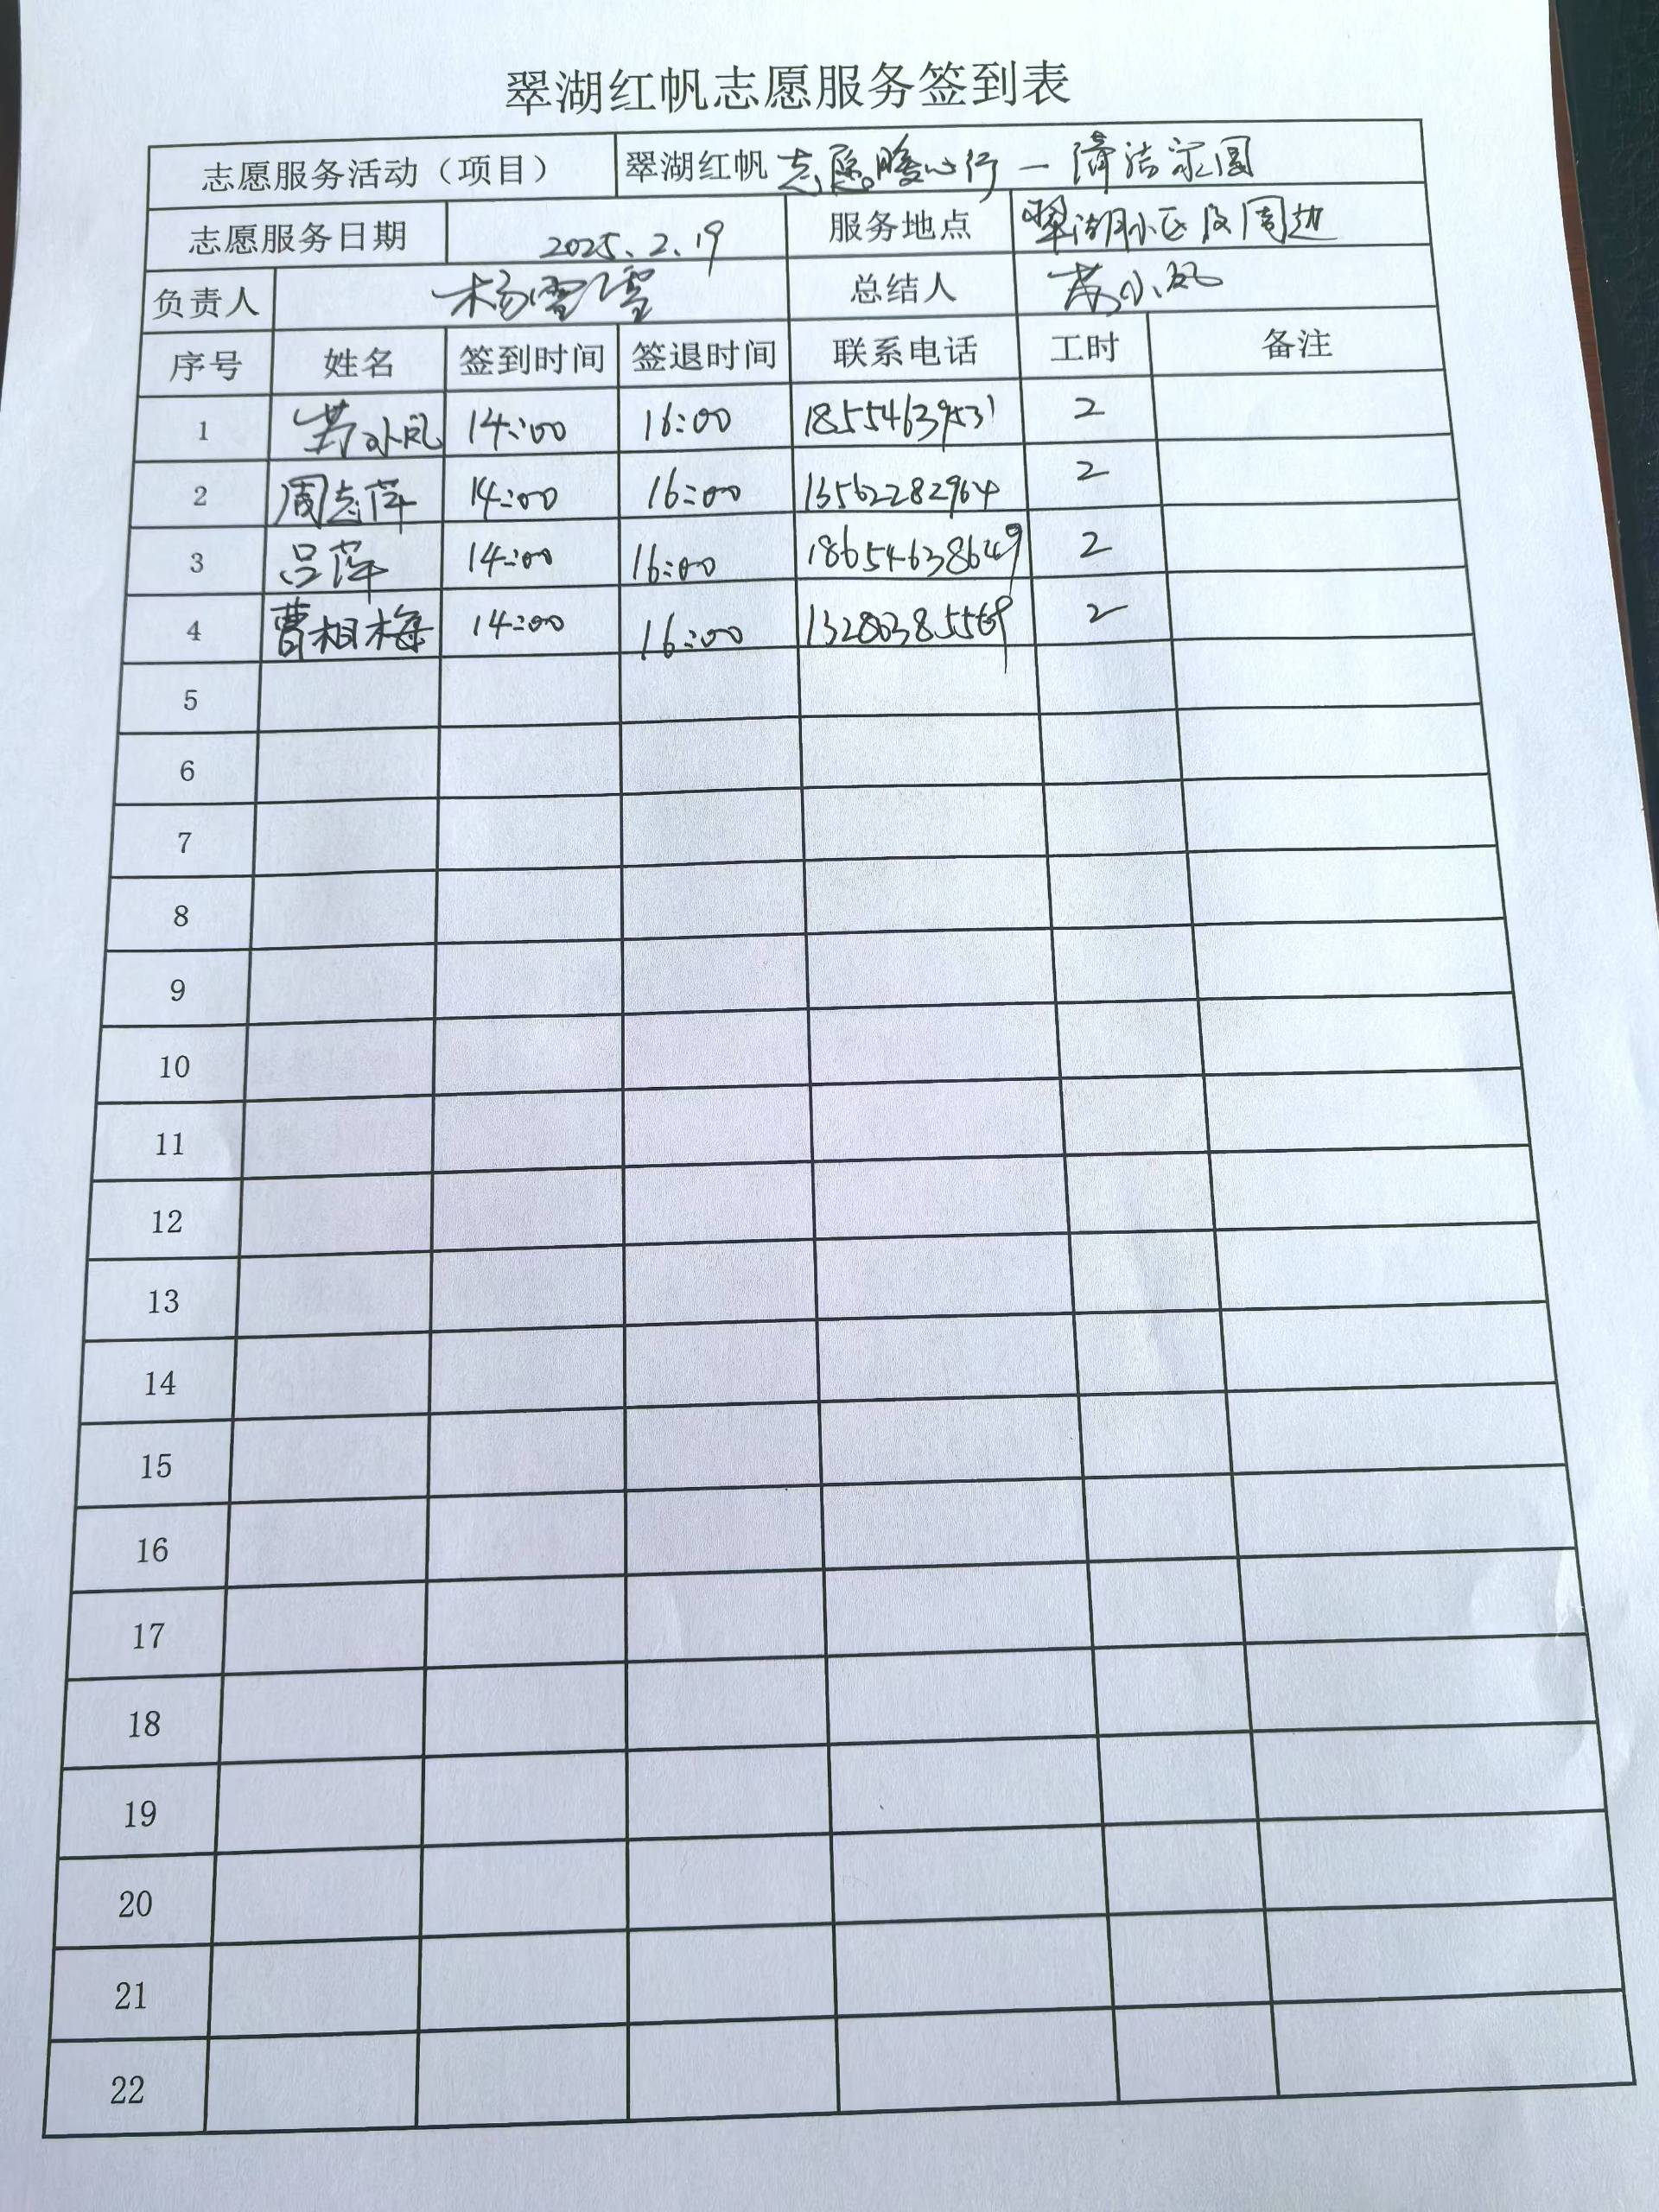 翠湖红帆志愿服务签到表
志愿服务活动（项目） 翠湖红帆 志愿暖心行 — 清洁家园
志愿服务日期 2025.2.19 服务地点 翠湖小区及周边
负责人 杨雪莹 总结人 小风
序号 姓名 签到时间 签退时间 联系电话 工时 备注
1 小风 14:00 16:00 18554639531 2
2 周志萍 14:00 16:00 13562282964 2
3 吕萍 14:00 16:00 18654638649 2
4 曹相梅 14:00 16:00 13280385569 2
5
6
7
8
9
10
11
12
13
14
15
16
17
18
19
20
21
22